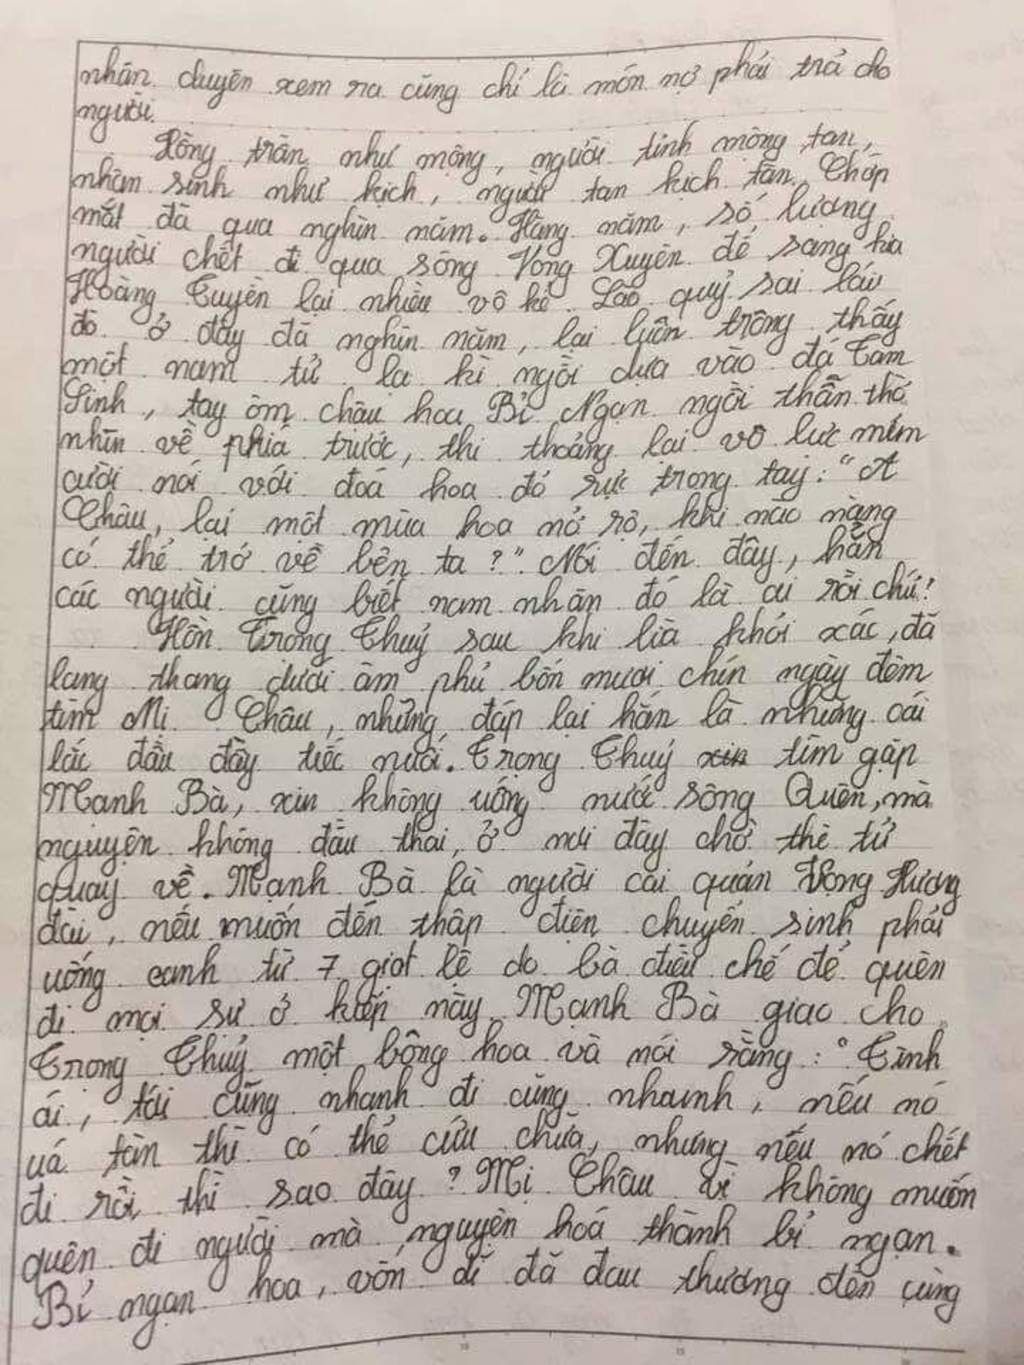 nhân duyên xem ra cũng chỉ là món nợ phải trả cho
người.
Hồng trần như mộng, người tỉnh mộng tan,
nhân sinh như kịch, người tan kịch tàn. Chớp
mắt đã qua nghìn năm. Hàng năm, số lượng
người chết đi qua sông Vong Xuyên để sang kia
Hoàng Tuyền lại nhiều vô kể. Lão quỷ sai lái
đò ở đây đã nghìn năm, lại luôn trông thấy
một nam tử lạ kì ngồi dựa vào đá Tam
Sinh, tay ôm chậu hoa Bỉ Ngạn ngồi thẫn thờ
nhìn về phía trước, thi thoảng lại vô lực mỉm
cười nói với đoá hoa đỏ rực trong tay: "A
Châu, lại một mùa hoa nở rộ, khi nào nàng
có thể trở về bên ta?" Nói đến đây, hẳn
các người cũng biết nam nhân đó là ai rồi chứ!
Hồn Trọng Thuỷ sau khi lìa khỏi xác, đã
lang thang dưới âm phủ bốn mươi chín ngày đêm
tìm Mị Châu, nhưng đáp lại hắn là những cái
lắc đầu đầy tiếc nuối. Trọng Thuỷ xin tìm gặp
Mạnh Bà, xin không uống nước sông Quên, mà
nguyện không đầu thai, ở nơi đây chờ thê tử
quay về. Mạnh Bà là người cai quản Vọng Hương
đài, nếu muốn đến thập điện chuyển sinh phải
uống canh từ 7 giọt lệ do bà điều chế để quên
đi mọi sự ở kiếp này. Mạnh Bà giao cho
Trọng Thuỷ một bông hoa và nói rằng: "Tình
ái, tới cũng nhanh đi cũng nhanh, nếu nó
úa tàn thì có thể cứu chữa, nhưng nếu nó chết
đi rồi thì sao đây? Mị Châu vì không muốn
quên đi người mà nguyện hoá thành bỉ ngạn.
Bỉ ngạn hoa, vốn dĩ đã đau thương đến cùng